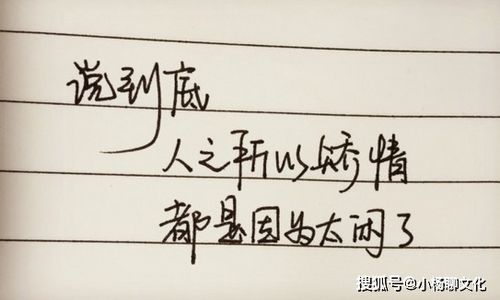 说到底
人之所以矫情
都是因为太闲了
搜狐号@小杨聊文化